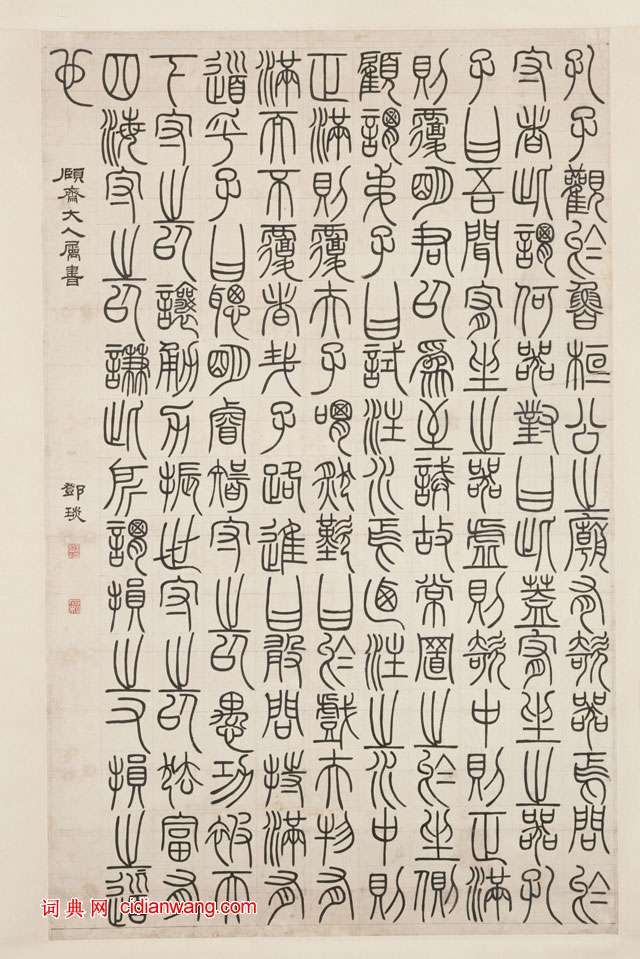 孔子觀於魯桓公之廟有欹器焉問於
守者此謂何器對曰此蓋宥坐之器孔
子曰吾聞宥坐之器虛則欹中則正滿
則覆明君以為至誡故常置之於坐側
顧謂弟子曰試注水焉乃注之水中則
正滿則覆夫子喟然歎曰於戲夫物有
滿而不覆者哉子路進曰敢問持滿有
道乎子曰聰明睿智守之以愚功被天
下守之以讓勇力振世守之以怯富有
四海守之以謙此所謂損之又損之道
也
頤齋大人屬書
鄧琰
词典网 cidianwang.com